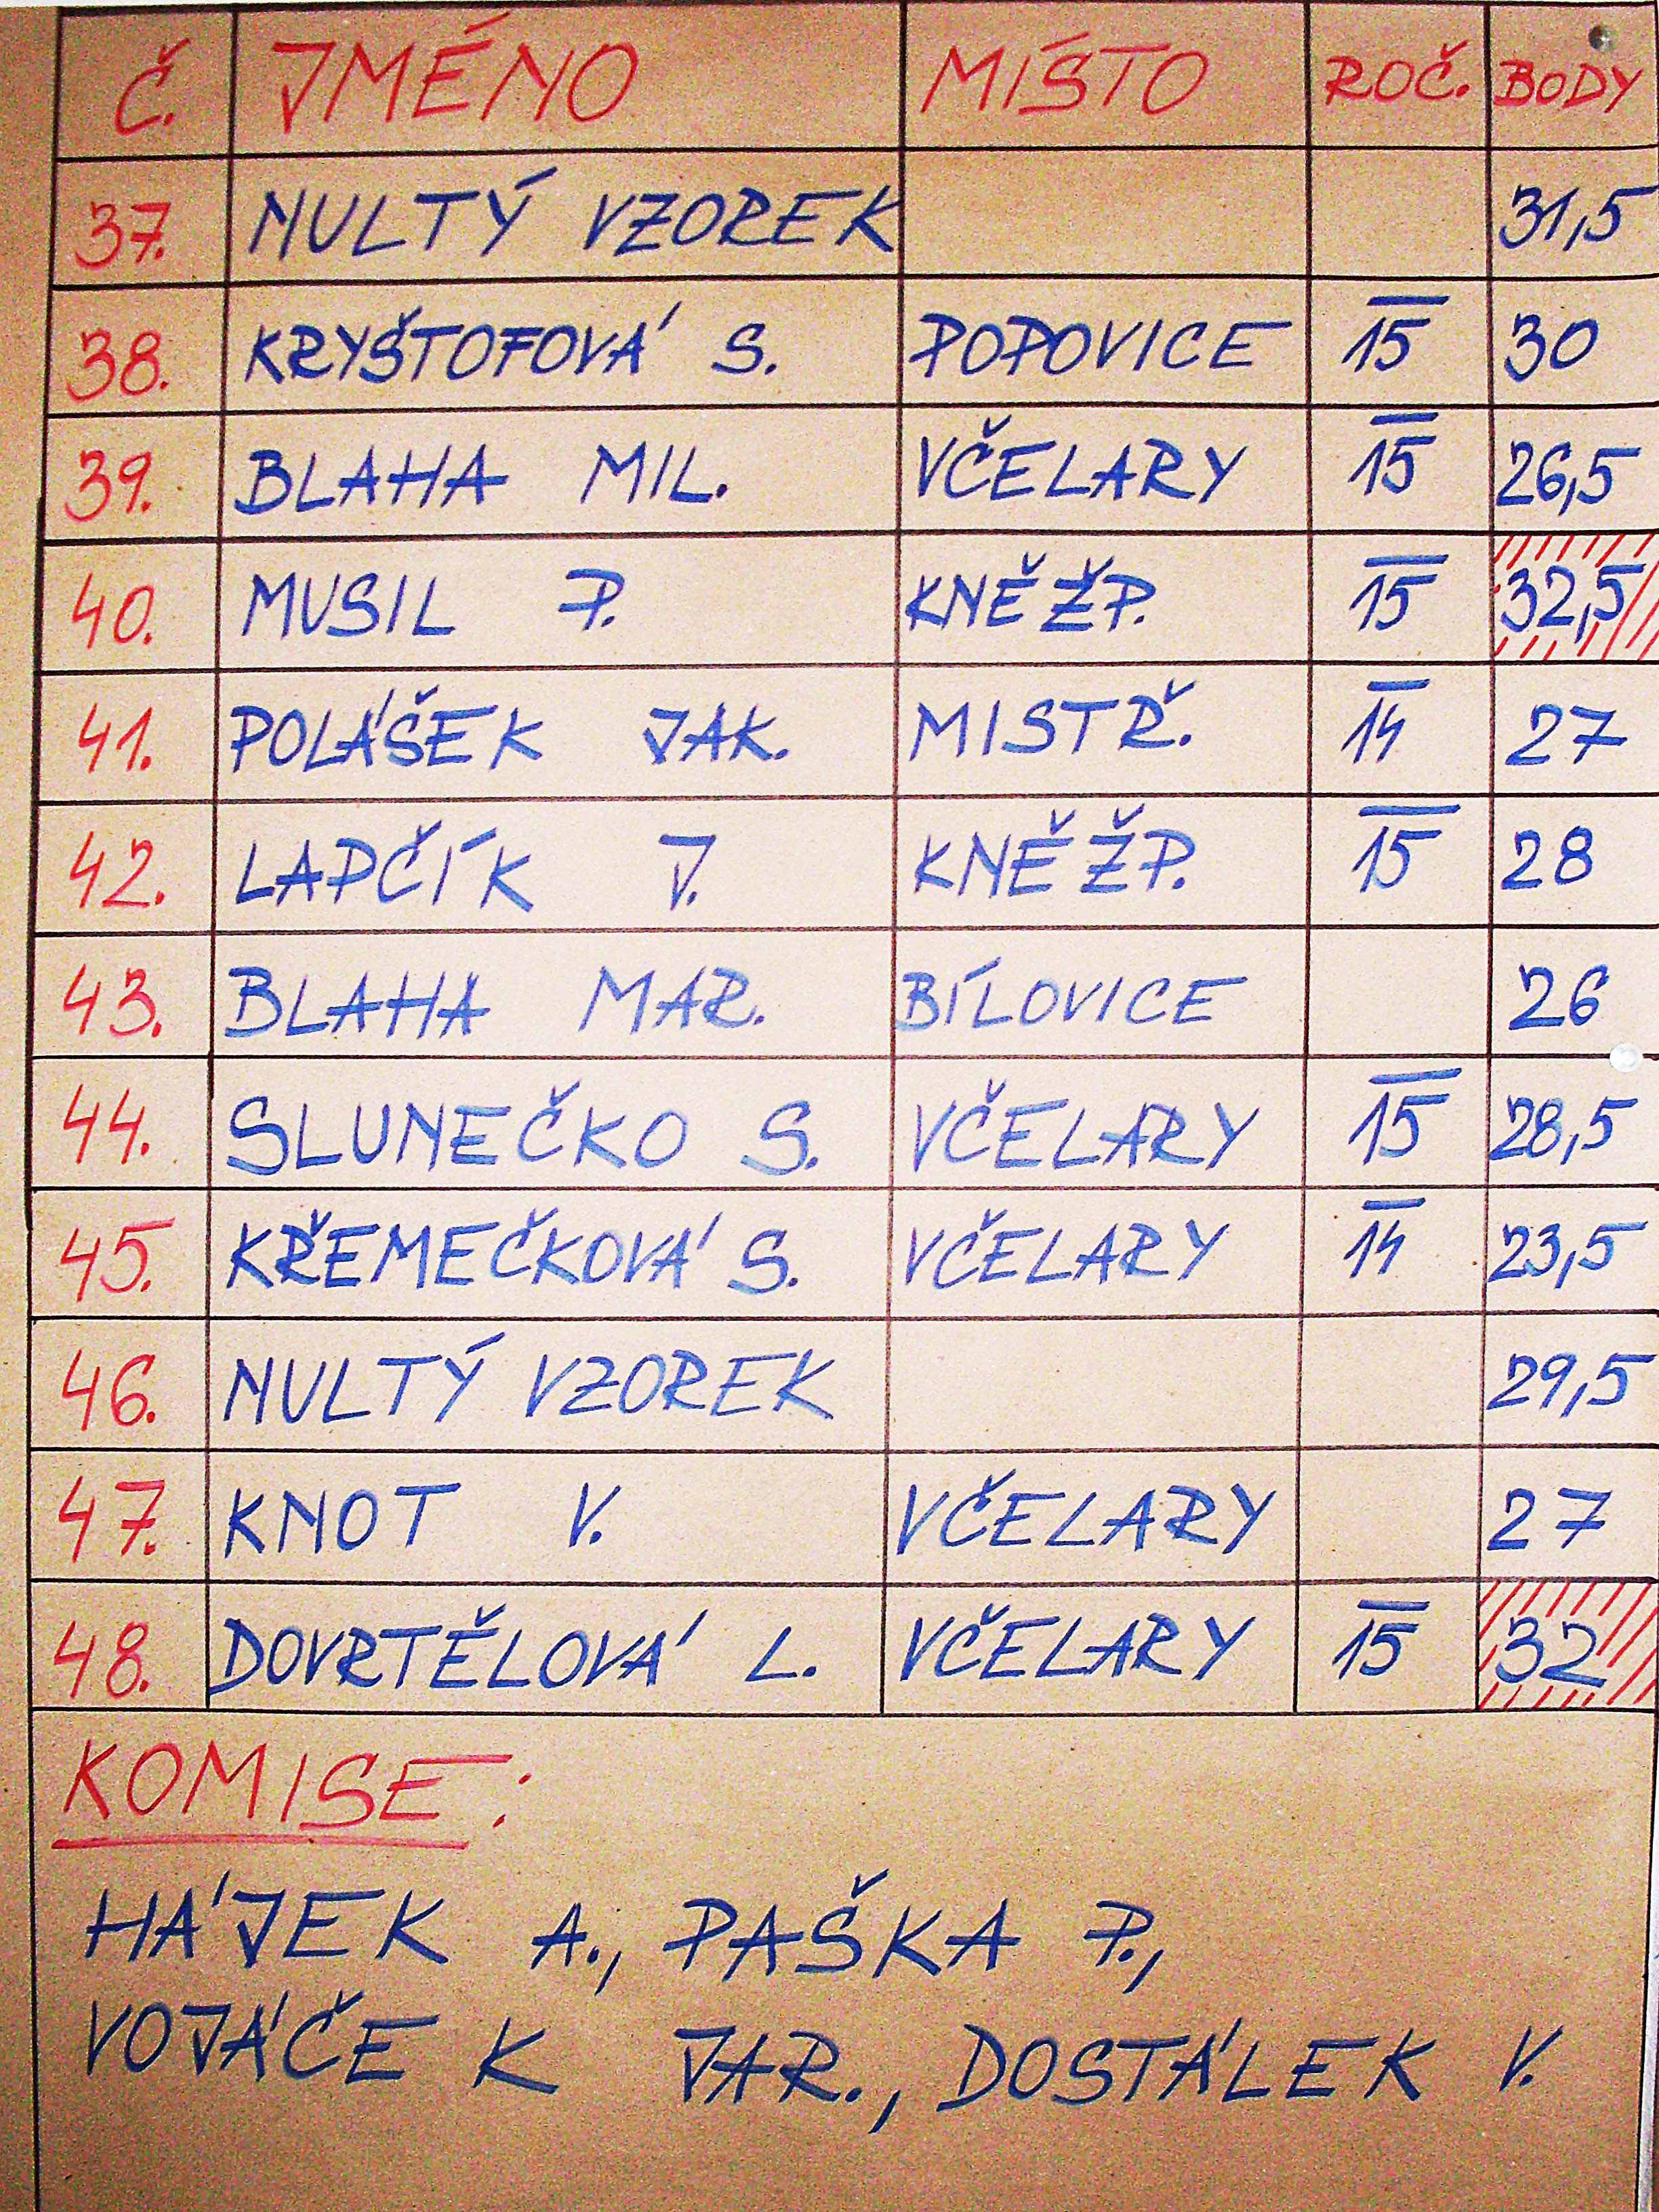 Č. JMÉNO MÍSTO ROČ. BODY
37. NULTÝ VZOREK 31,5
38. KRYŠTOFOVÁ S. POPOVICE 15 30
39. BLAHA MIL. VČELARY 15 26,5
40. MUSIL P. KNĚŽP. 15 32,5
41. POLÁŠEK JAK. MISTŘ. 14 27
42. LAPČÍK J. KNĚŽP. 15 28
43. BLAHA MAR. BÍLOVICE 26
44. SLUNEČKO S. VČELARY 15 28,5
45. KŘEMEČKOVÁ S. VČELARY 14 23,5
46. NULTÝ VZOREK 29,5
47. KNOT V. VČELARY 27
48. DOVRTĚLOVÁ L. VČELARY 15 32
KOMISE:
HÁJEK A., PAŠKA P.,
VOJÁČEK JAR., DOSTÁLEK V.